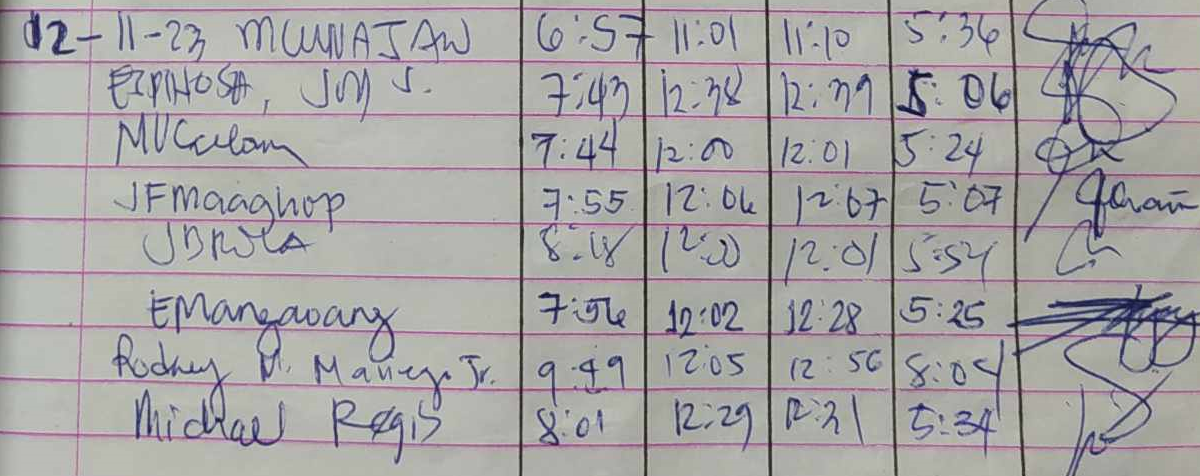 12-11-23 MCUNAJAN 6:57 11:01 11:10 5:36
ESPINOSA, JM J. 7:43 12:38 12:39 5:06
7:44 12:00 12:01 5:24
JFMaaghop 7:55 12:06 12:07 5:07
8:18 12:00 12:01 5:54
EMangaoang 7:56 12:02 12:28 5:25
Rodney M. Jr. 9:49 12:05 12:56 8:04
Michael Regis 8:01 12:29 12:31 5:34